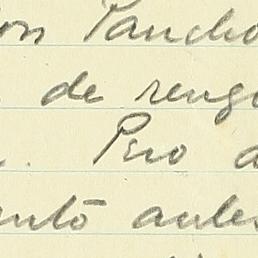 on Pancho
de reng
. Pero a
untó antes